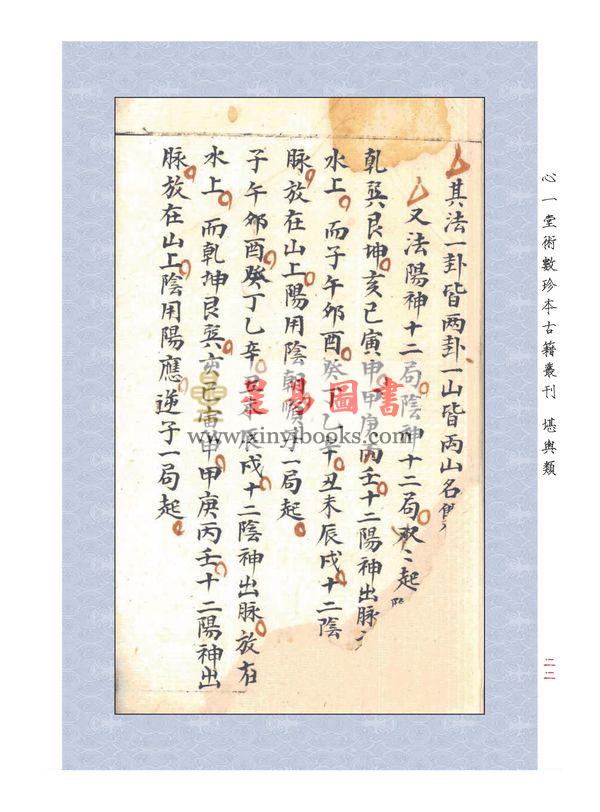 心一堂術數珍本古籍叢刊 堪輿類
其法一卦皆两卦一山皆两山名
又法陽神十二局陰神十二局 起
乾巽艮坤亥巳寅申甲庚丙壬十二陽神出脉
水上而子午夘酉癸丁乙辛丑未辰戌十二陰
脉放在山上陽用陰朝順 一局起
子午夘酉癸丁乙辛丑未辰戌十二陰神出脉放在
水上而乾坤艮巽亥巳寅申甲庚丙壬十二陽神出
脉放在山上陰用陽應逆子一局起
星易圖書
www.xinyibooks.com
二二